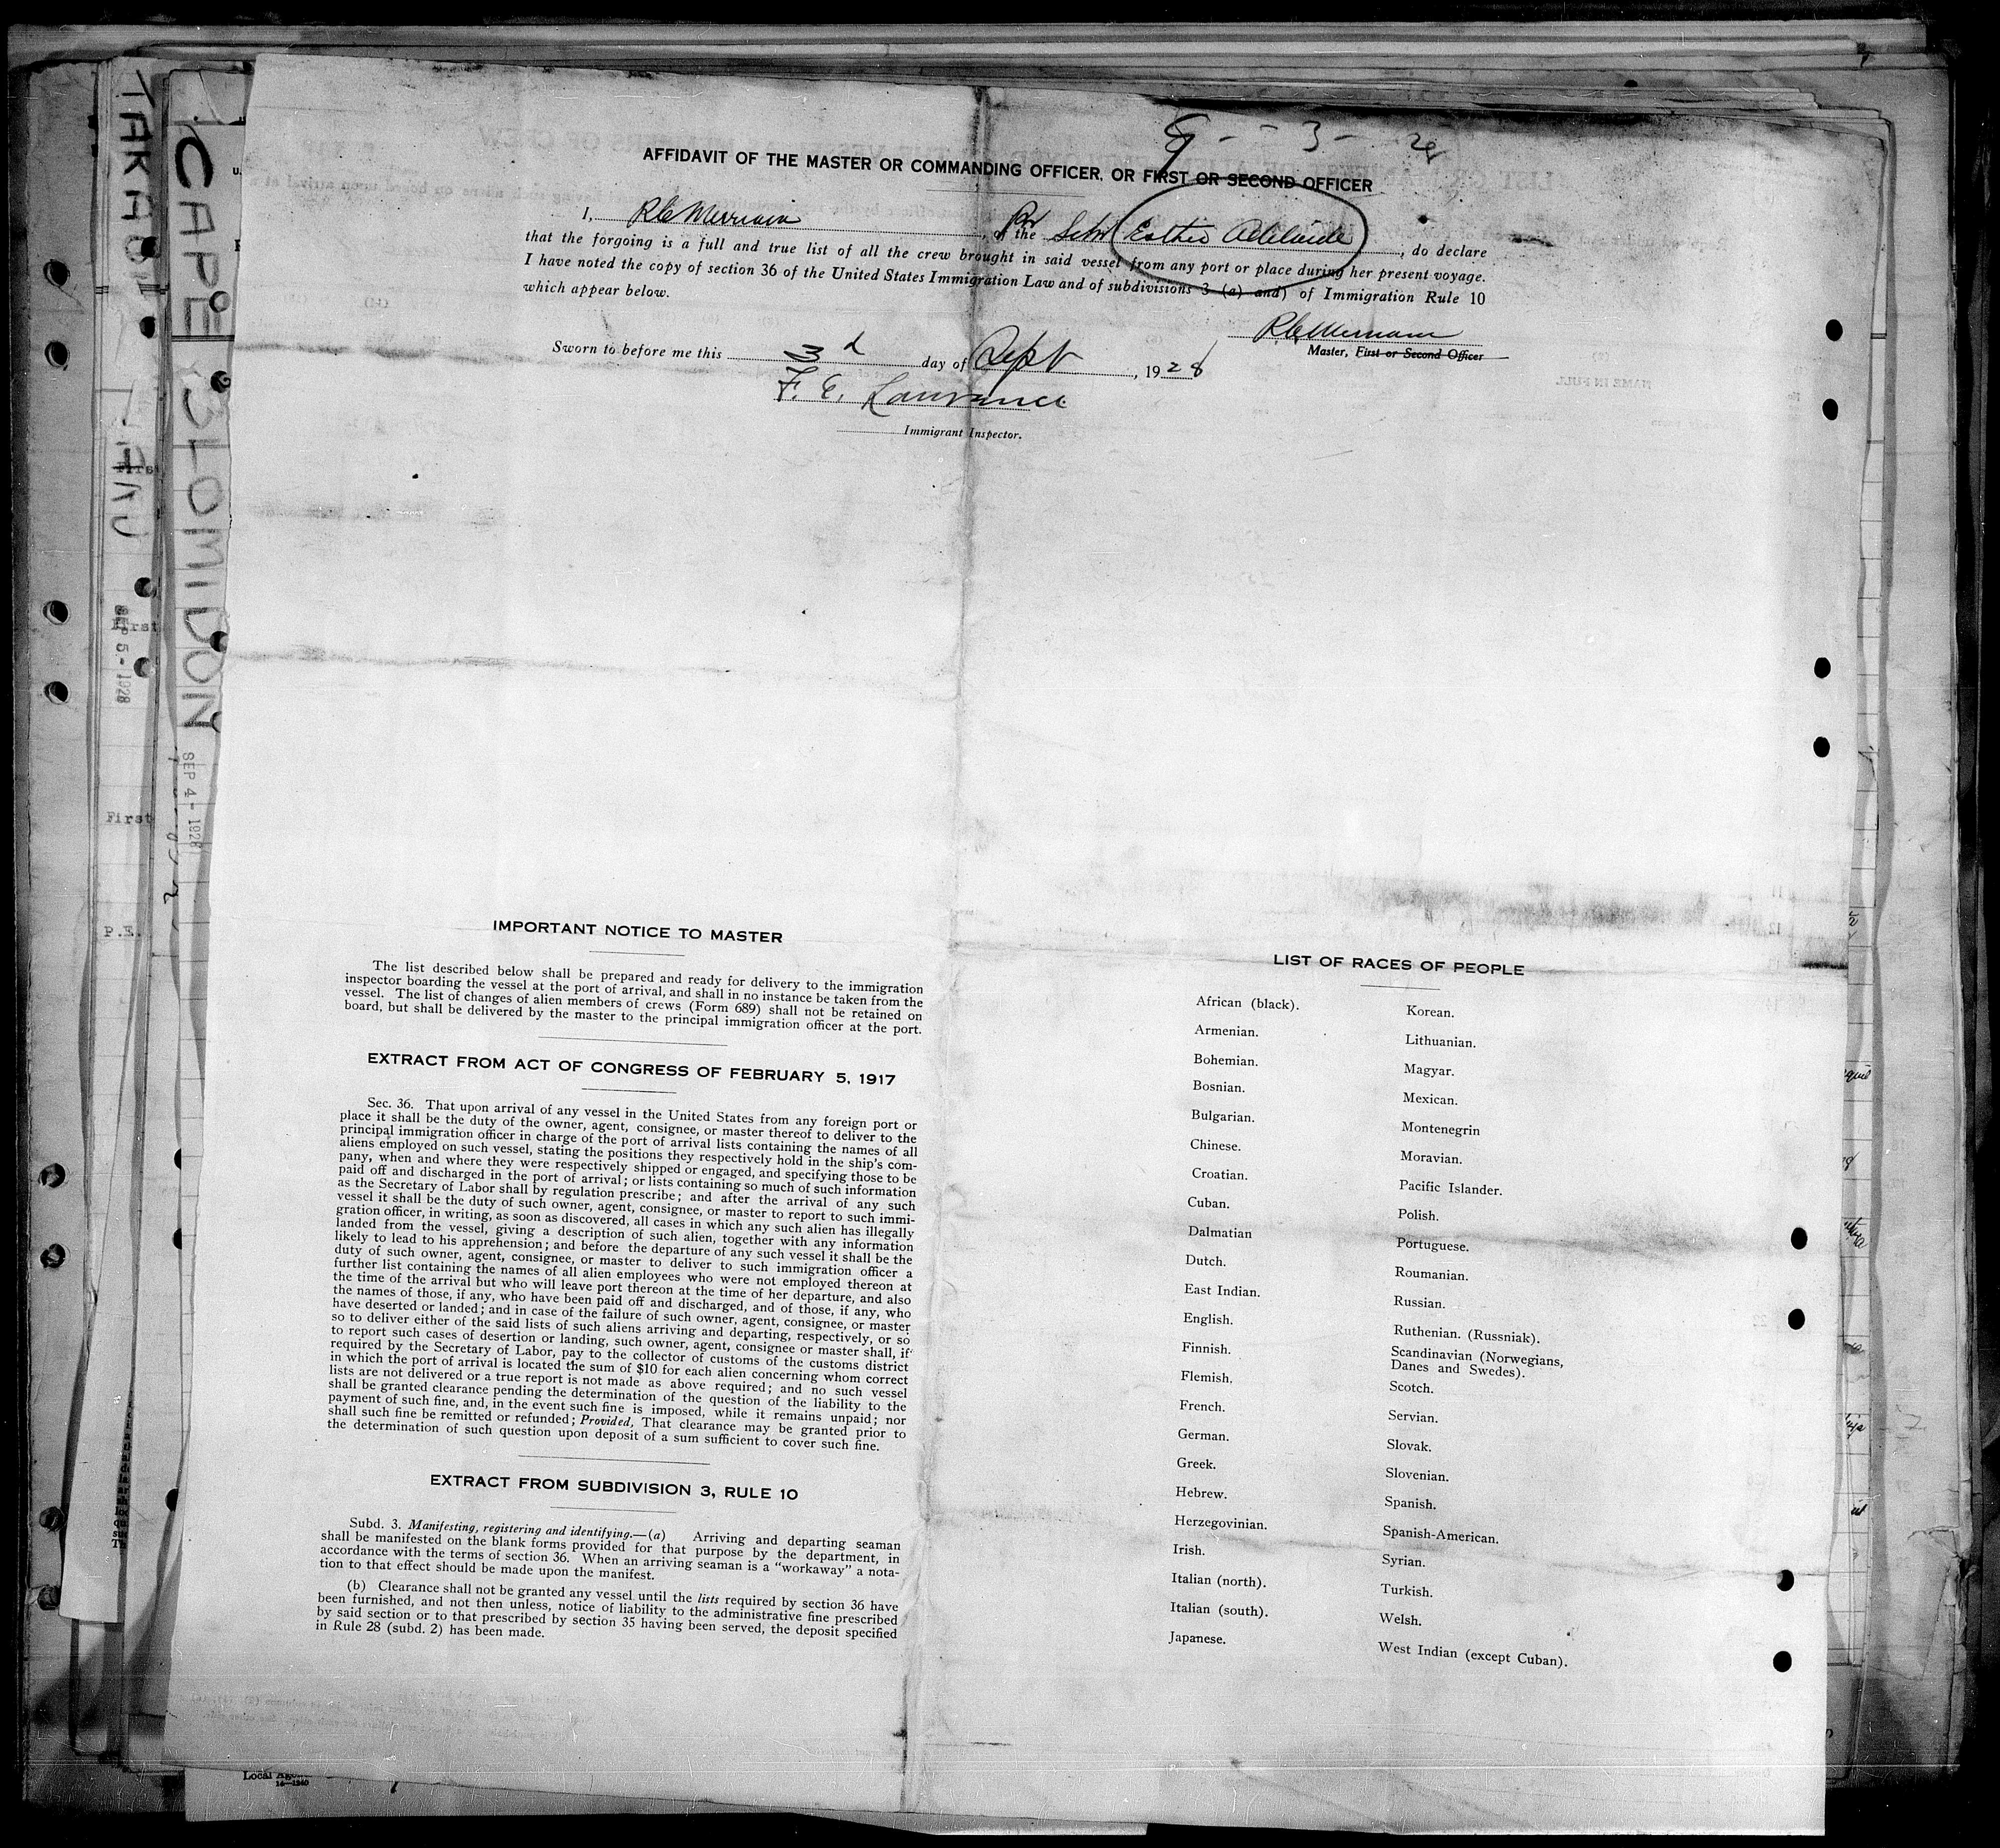 TAKAOKA
MARU
SEP 5 - 1928
First
First
First
P.E.
CAPE BLOMIDON
SEP 4 - 1928
9 - 3 - 28
AFFIDAVIT OF THE MASTER OR COMMANDING OFFICER, OR FIRST OR SECOND OFFICER
I, R C Merriam, of the Br Schr Esther Adelaide, do declare
that the forgoing is a full and true list of all the crew brought in said vessel from any port or place during her present voyage.
I have noted the copy of section 36 of the United States Immigration Law and of subdivisions 3 (a) and) of Immigration Rule 10
which appear below.
R C Merriam
Master, First or Second Officer
Sworn to before me this 3d day of Sept, 1928
F. E. Lawrance
Immigrant Inspector.
IMPORTANT NOTICE TO MASTER
The list described below shall be prepared and ready for delivery to the immigration
inspector boarding the vessel at the port of arrival, and shall in no instance be taken from the
vessel. The list of changes of alien members of crews (Form 689) shall not be retained on
board, but shall be delivered by the master to the principal immigration officer at the port.
EXTRACT FROM ACT OF CONGRESS OF FEBRUARY 5, 1917
Sec. 36. That upon arrival of any vessel in the United States from any foreign port or
place it shall be the duty of the owner, agent, consignee, or master thereof to deliver to the
principal immigration officer in charge of the port of arrival lists containing the names of all
aliens employed on such vessel, stating the positions they respectively hold in the ship's com-
pany, when and where they were respectively shipped or engaged, and specifying those to be
paid off and discharged in the port of arrival; or lists containing so much of such information
as the Secretary of Labor shall by regulation prescribe; and after the arrival of any such
vessel it shall be the duty of such owner, agent, consignee, or master to report to such immi-
gration officer, in writing, as soon as discovered, all cases in which any such alien has illegally
landed from the vessel, giving a description of such alien, together with any information
likely to lead to his apprehension; and before the departure of any such vessel it shall be the
duty of such owner, agent, consignee, or master to deliver to such immigration officer a
further list containing the names of all alien employees who were not employed thereon at
the time of the arrival but who will leave port thereon at the time of her departure, and also
the names of those, if any, who have been paid off and discharged, and of those, if any, who
have deserted or landed; and in case of the failure of such owner, agent, consignee, or master
so to deliver either of the said lists of such aliens arriving and departing, respectively, or so
to report such cases of desertion or landing, such owner, agent, consignee or master shall, if
required by the Secretary of Labor, pay to the collector of customs of the customs district
in which the port of arrival is located the sum of $10 for each alien concerning whom correct
lists are not delivered or a true report is not made as above required; and no such vessel
shall be granted clearance pending the determination of the question of the liability to the
payment of such fine, and, in the event such fine is imposed, while it remains unpaid; nor
shall such fine be remitted or refunded; Provided, That clearance may be granted prior to
the determination of such question upon deposit of a sum sufficient to cover such fine.
EXTRACT FROM SUBDIVISION 3, RULE 10
Subd. 3. Manifesting, registering and identifying.—(a) Arriving and departing seaman
shall be manifested on the blank forms provided for that purpose by the department, in
accordance with the terms of section 36. When an arriving seaman is a "workaway" a nota-
tion to that effect should be made upon the manifest.
(b) Clearance shall not be granted any vessel until the lists required by section 36 have
been furnished, and not then unless, notice of liability to the administrative fine prescribed
by said section or to that prescribed by section 35 having been served, the deposit specified
in Rule 28 (subd. 2) has been made.
LIST OF RACES OF PEOPLE
African (black).
Armenian.
Bohemian.
Bosnian.
Bulgarian.
Chinese.
Croatian.
Cuban.
Dalmatian
Dutch.
East Indian.
English.
Finnish.
Flemish.
French.
German.
Greek.
Hebrew.
Herzegovinian.
Irish.
Italian (north).
Italian (south).
Japanese.
Korean.
Lithuanian.
Magyar.
Mexican.
Montenegrin
Moravian.
Pacific Islander.
Polish.
Portuguese.
Roumanian.
Russian.
Ruthenian. (Russniak).
Scandinavian (Norwegians,
Danes and Swedes).
Scotch.
Servian.
Slovak.
Slovenian.
Spanish.
Spanish-American.
Syrian.
Turkish.
Welsh.
West Indian (except Cuban).
Local